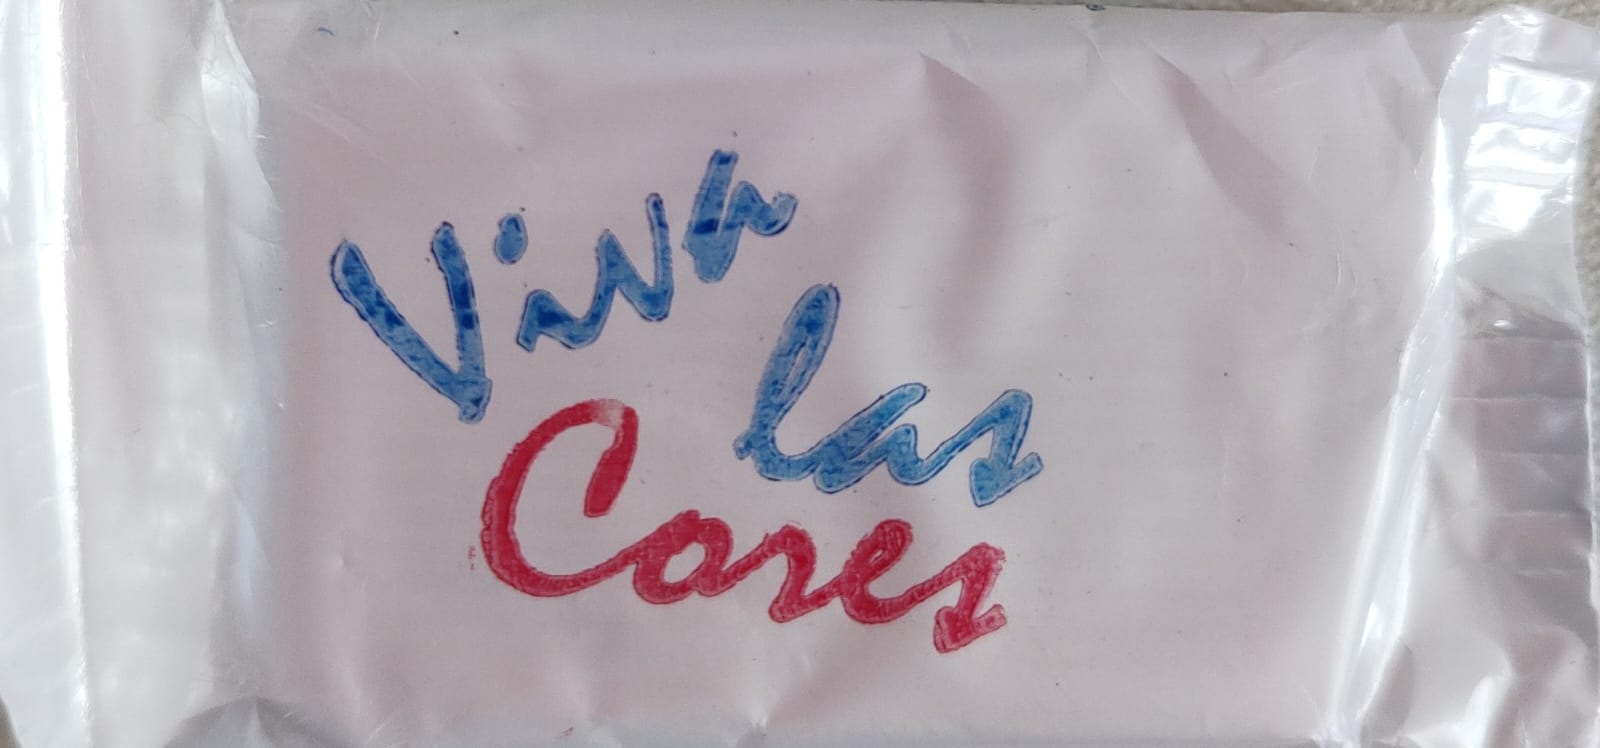 Viva
las
Cores